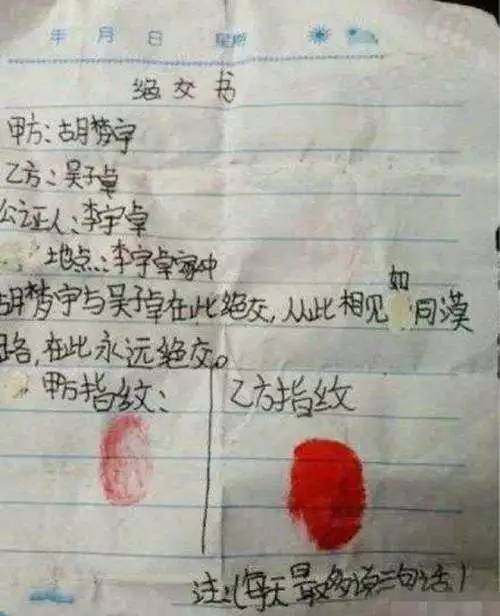 年 月 日 星期
绝交书
甲方:胡梦宇
乙方:吴子卓
公证人:李宇卓
地点:李宇卓家中
胡梦宇与吴子卓在此绝交,从此相见如同漠
路,在此永远绝交。
甲方指纹:
乙方指纹
注:(每天最多说三句话)